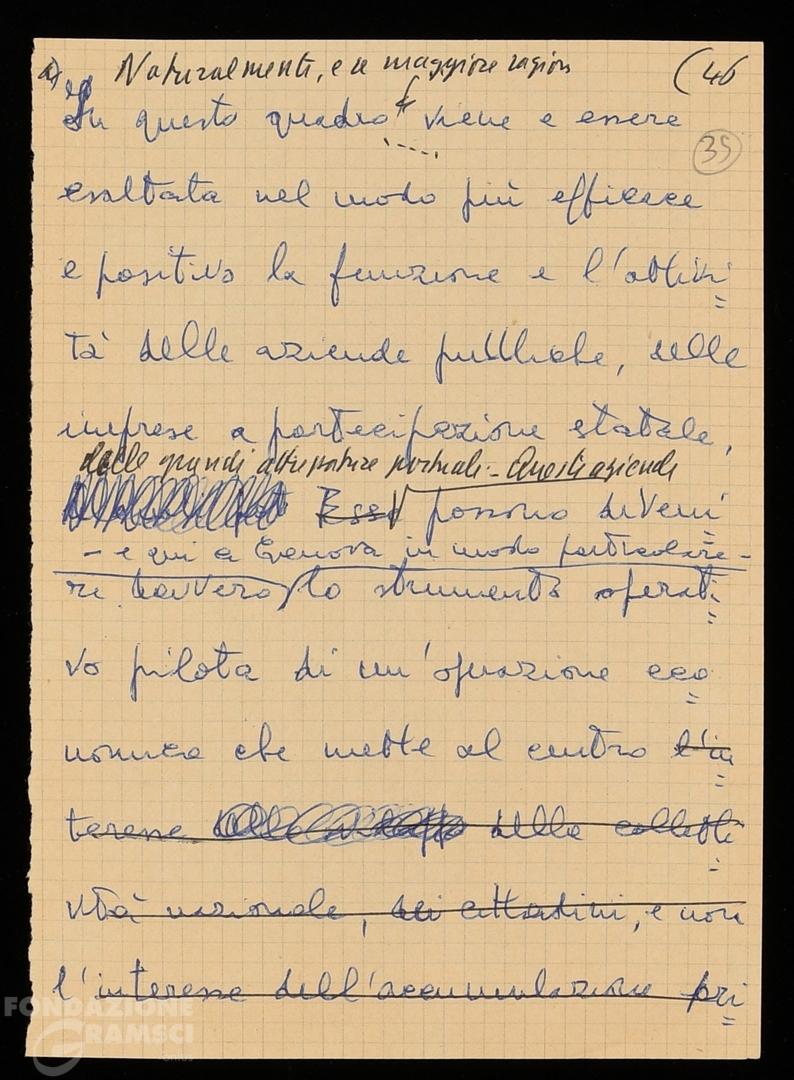 a) Naturalmente, e a maggiore ragion (46
35
in questo quadro viene e essere
esaltata nel modo più efficace
e positivo la funzione e l'attivi=
tà delle aziende pubbliche, delle
imprese a partecipazione statale,
delle grandi attrezzature portuali. Questi aziende
Esse possono diveni=
- e qui a Genova in modo particolare -
re davvero lo strumento operati=
vo pilota di un'operazione eco=
nomica che mette al centro l'in=
teresse della colletti=
vità nazionale, dei cittadini, e non
l'interesse dell'accumulazione pri=
FONDAZIONE
GRAMSCI
onlus